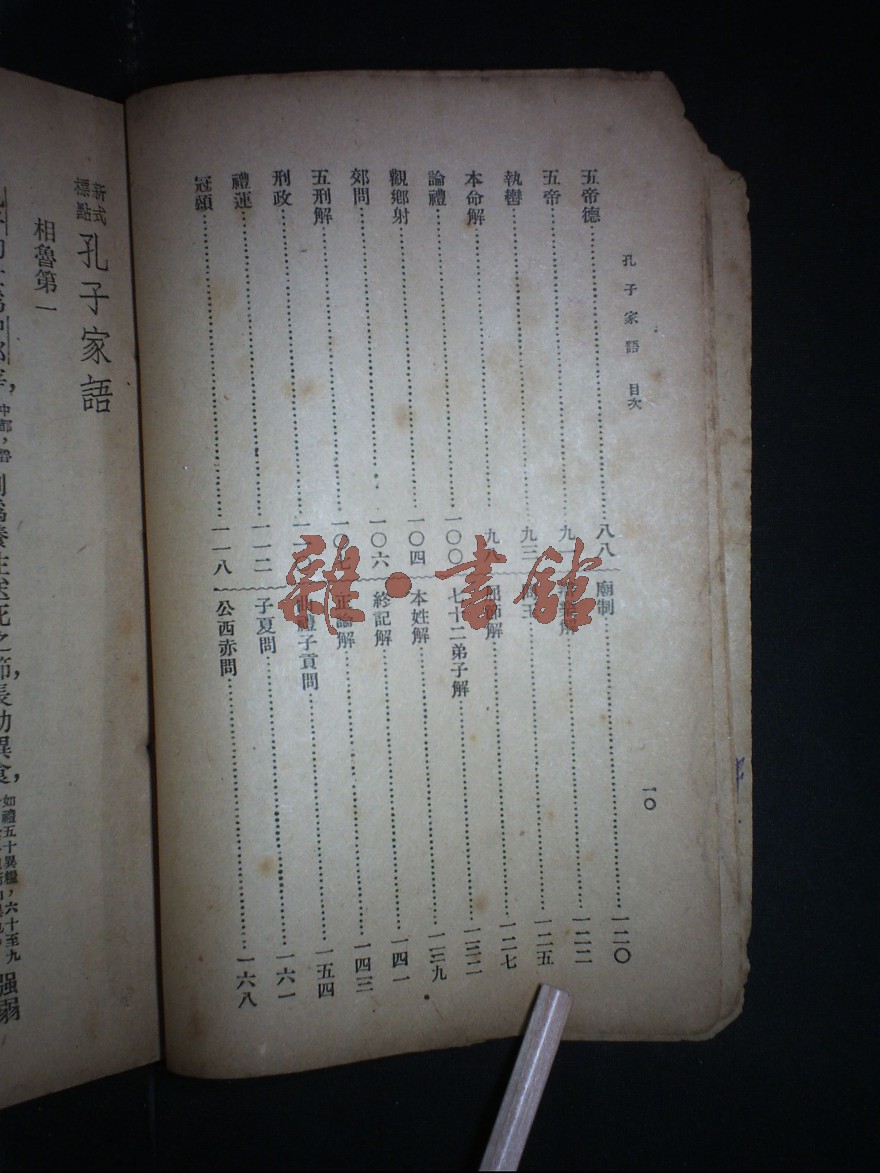 孔子家語 目次
一〇
五帝德……八八
五帝……九一
執轡……九三
本命解……九八
論禮……一〇〇
觀鄉射……一〇四
郊問……一〇六
五刑解……一〇七
刑政……一一〇
禮運……一一二
冠頌……一一八
廟制……一二〇
解……一二二
王……一二五
解……一二七
七十二弟子解……一三二
本姓解……一三九
終記解……一四一
正論解……一四三
曲禮子貢問……一五四
子夏問……一六一
公西赤問……一六八
雜·書館
新式標點 孔子家語
相魯第一
死之節，長幼異食，如禮五十異糧，六十至九 强弱